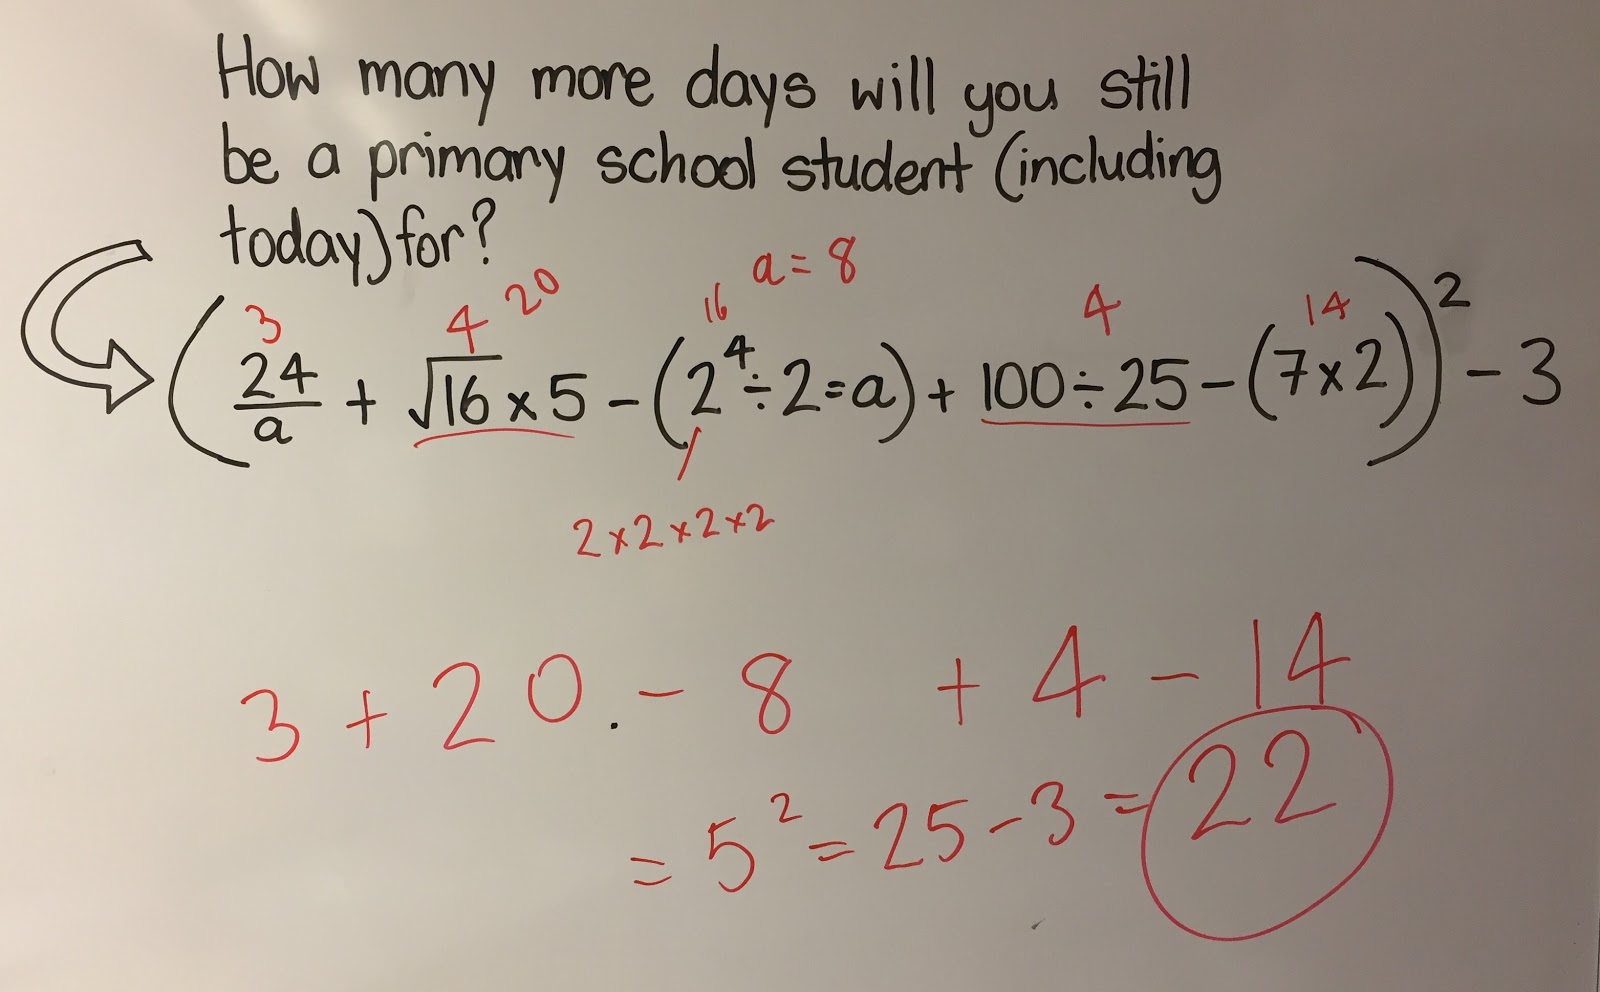 How many more days will you still
be a primary school student (including
today) for?
a = 8
3 4 20 16 4 14
(24/a + √16 × 5 - (2⁴ ÷ 2 = a) + 100 ÷ 25 - (7 × 2))² - 3
2 × 2 × 2 × 2
3 + 20 - 8 + 4 - 14
= 5² = 25 - 3 = 22